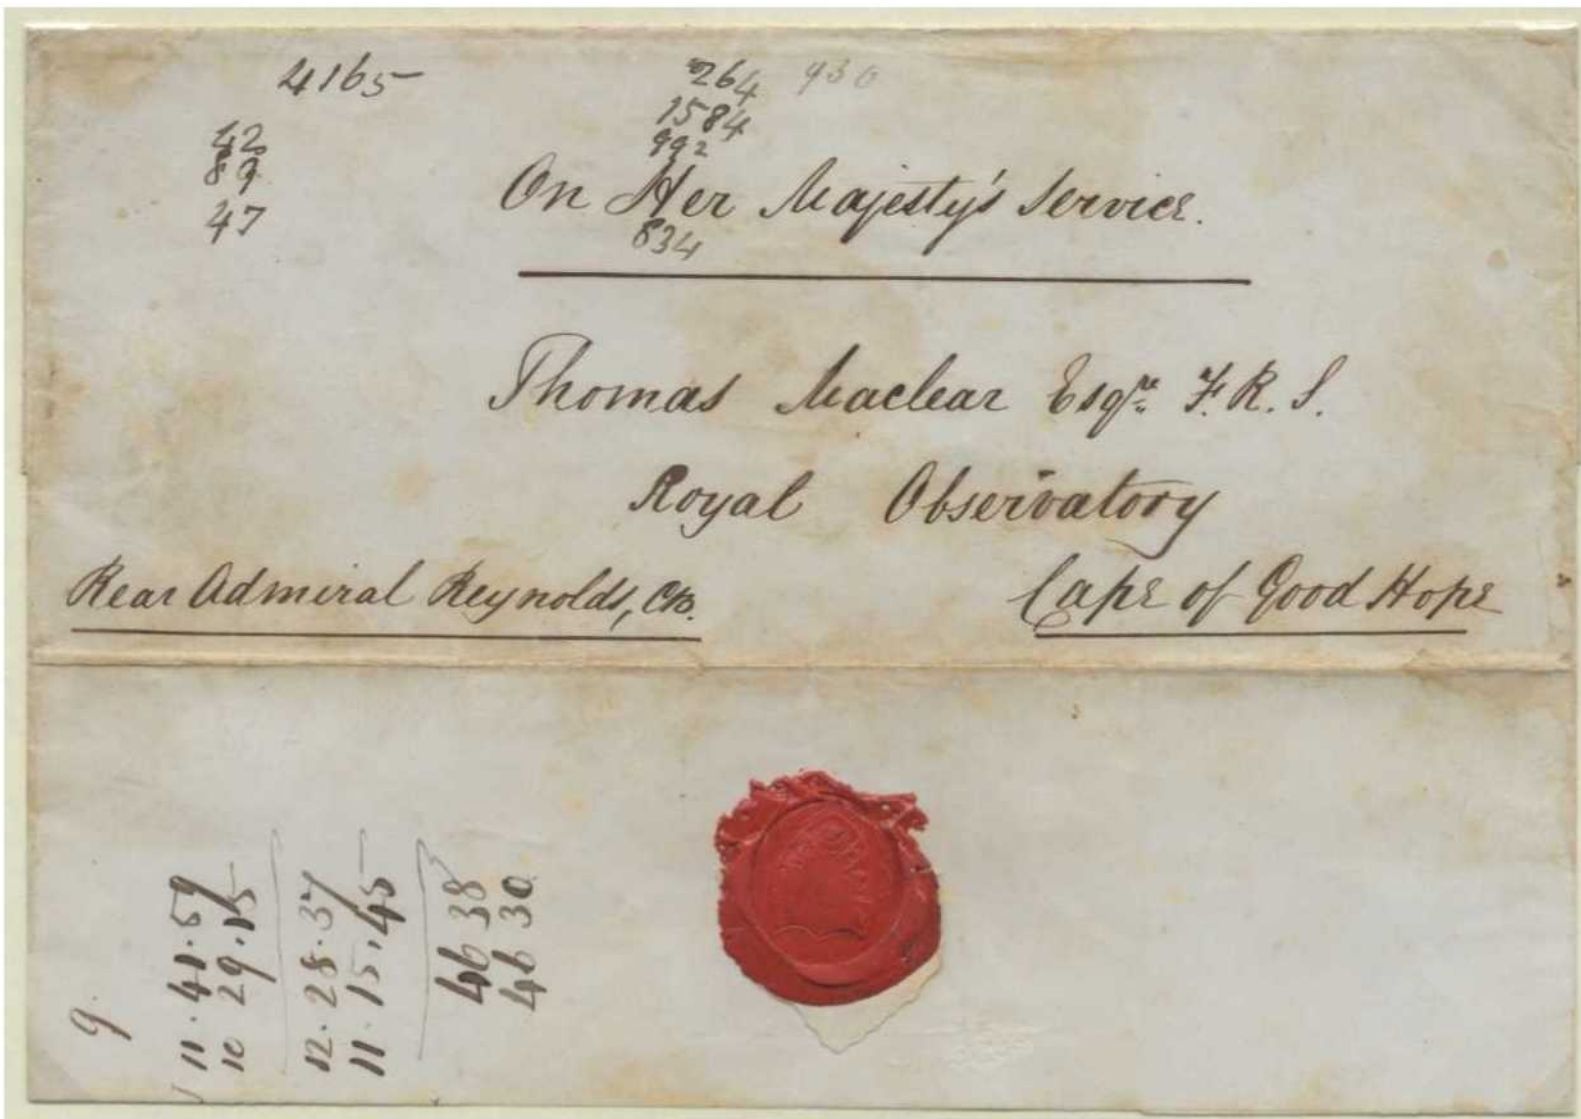 4165
264 930
1584
992
42
89
47
On Her Majesty's Service.
834
Thomas Maclear Esqre. F. R. S.
Royal Observatory
Rear Admiral Reynolds, CB.
Cape of Good Hope
9.
11. 41. 59
10 29. 15
12. 28. 37
11. 15. 45
46 38
46 30